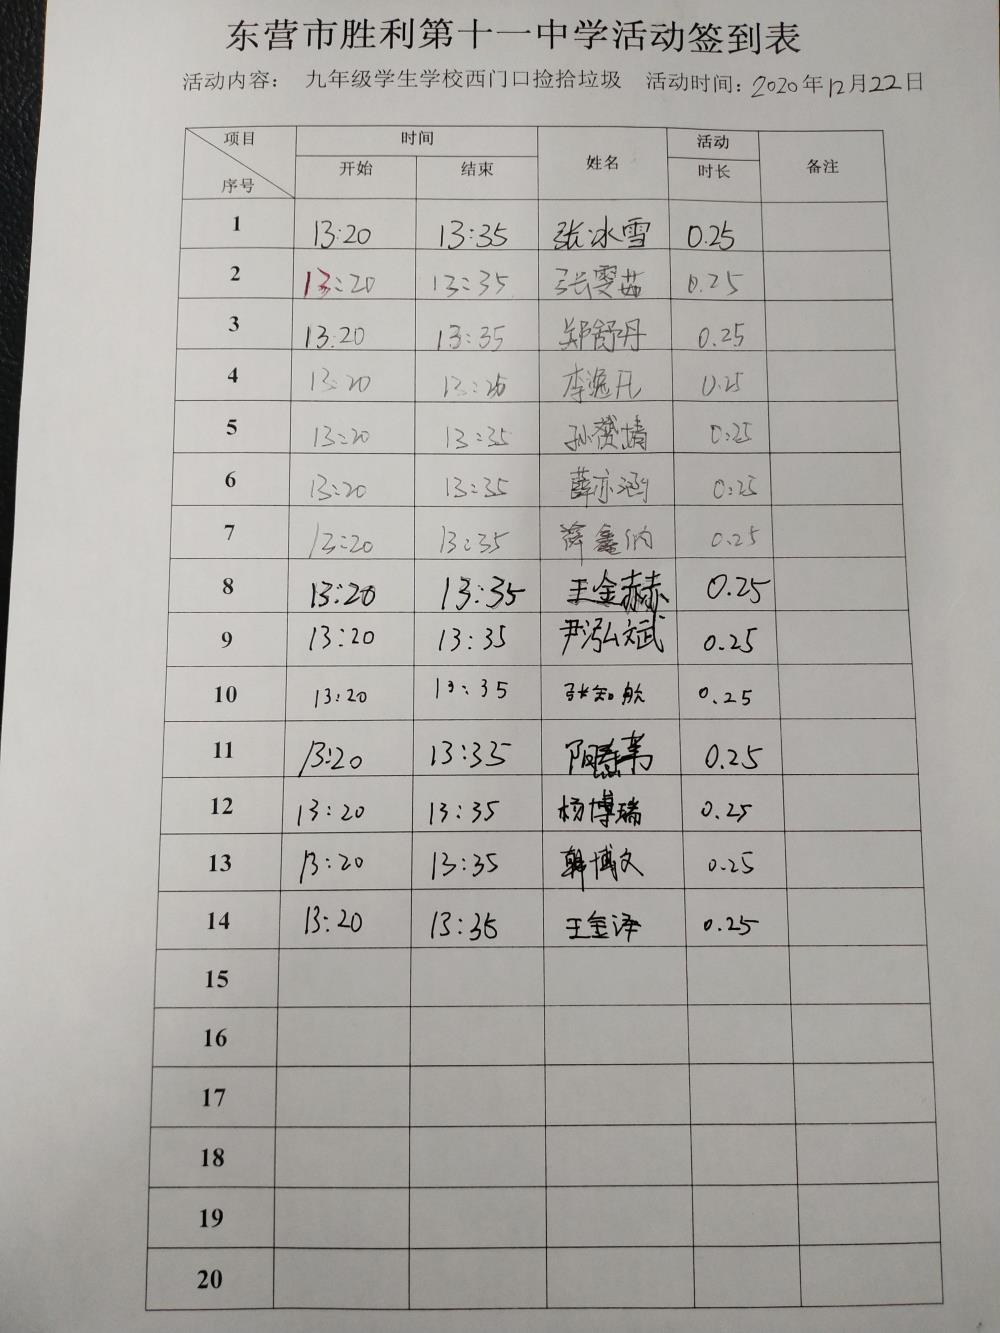 东营市胜利第十一中学活动签到表
活动内容： 九年级学生学校西门口捡拾垃圾 活动时间：2020年12月22日
项目 时间 姓名 活动 备注
序号 开始 结束 时长
1 13:20 13:35 张冰雪 0.25
2 13:20 13:35 张雯茹 0.25
3 13:20 13:35 郑舒丹 0.25
4 13:20 李逸凡 0.25
5 13:20 13:35 孙赟婧 0:25
6 13:20 13:35 薛亦涵 0:25
7 13:20 13:35 薛鑫 0.25
8 13:20 13:35 王金赫 0.25
9 13:20 13:35 尹泓斌 0.25
10 13:20 13:35 张知航 0.25
11 13:20 13:35 0.25
12 13:20 13:35 杨博瑞 0.25
13 13:20 13:35 韩博文 0.25
14 13:20 13:35 王金泽 0.25
15
16
17
18
19
20